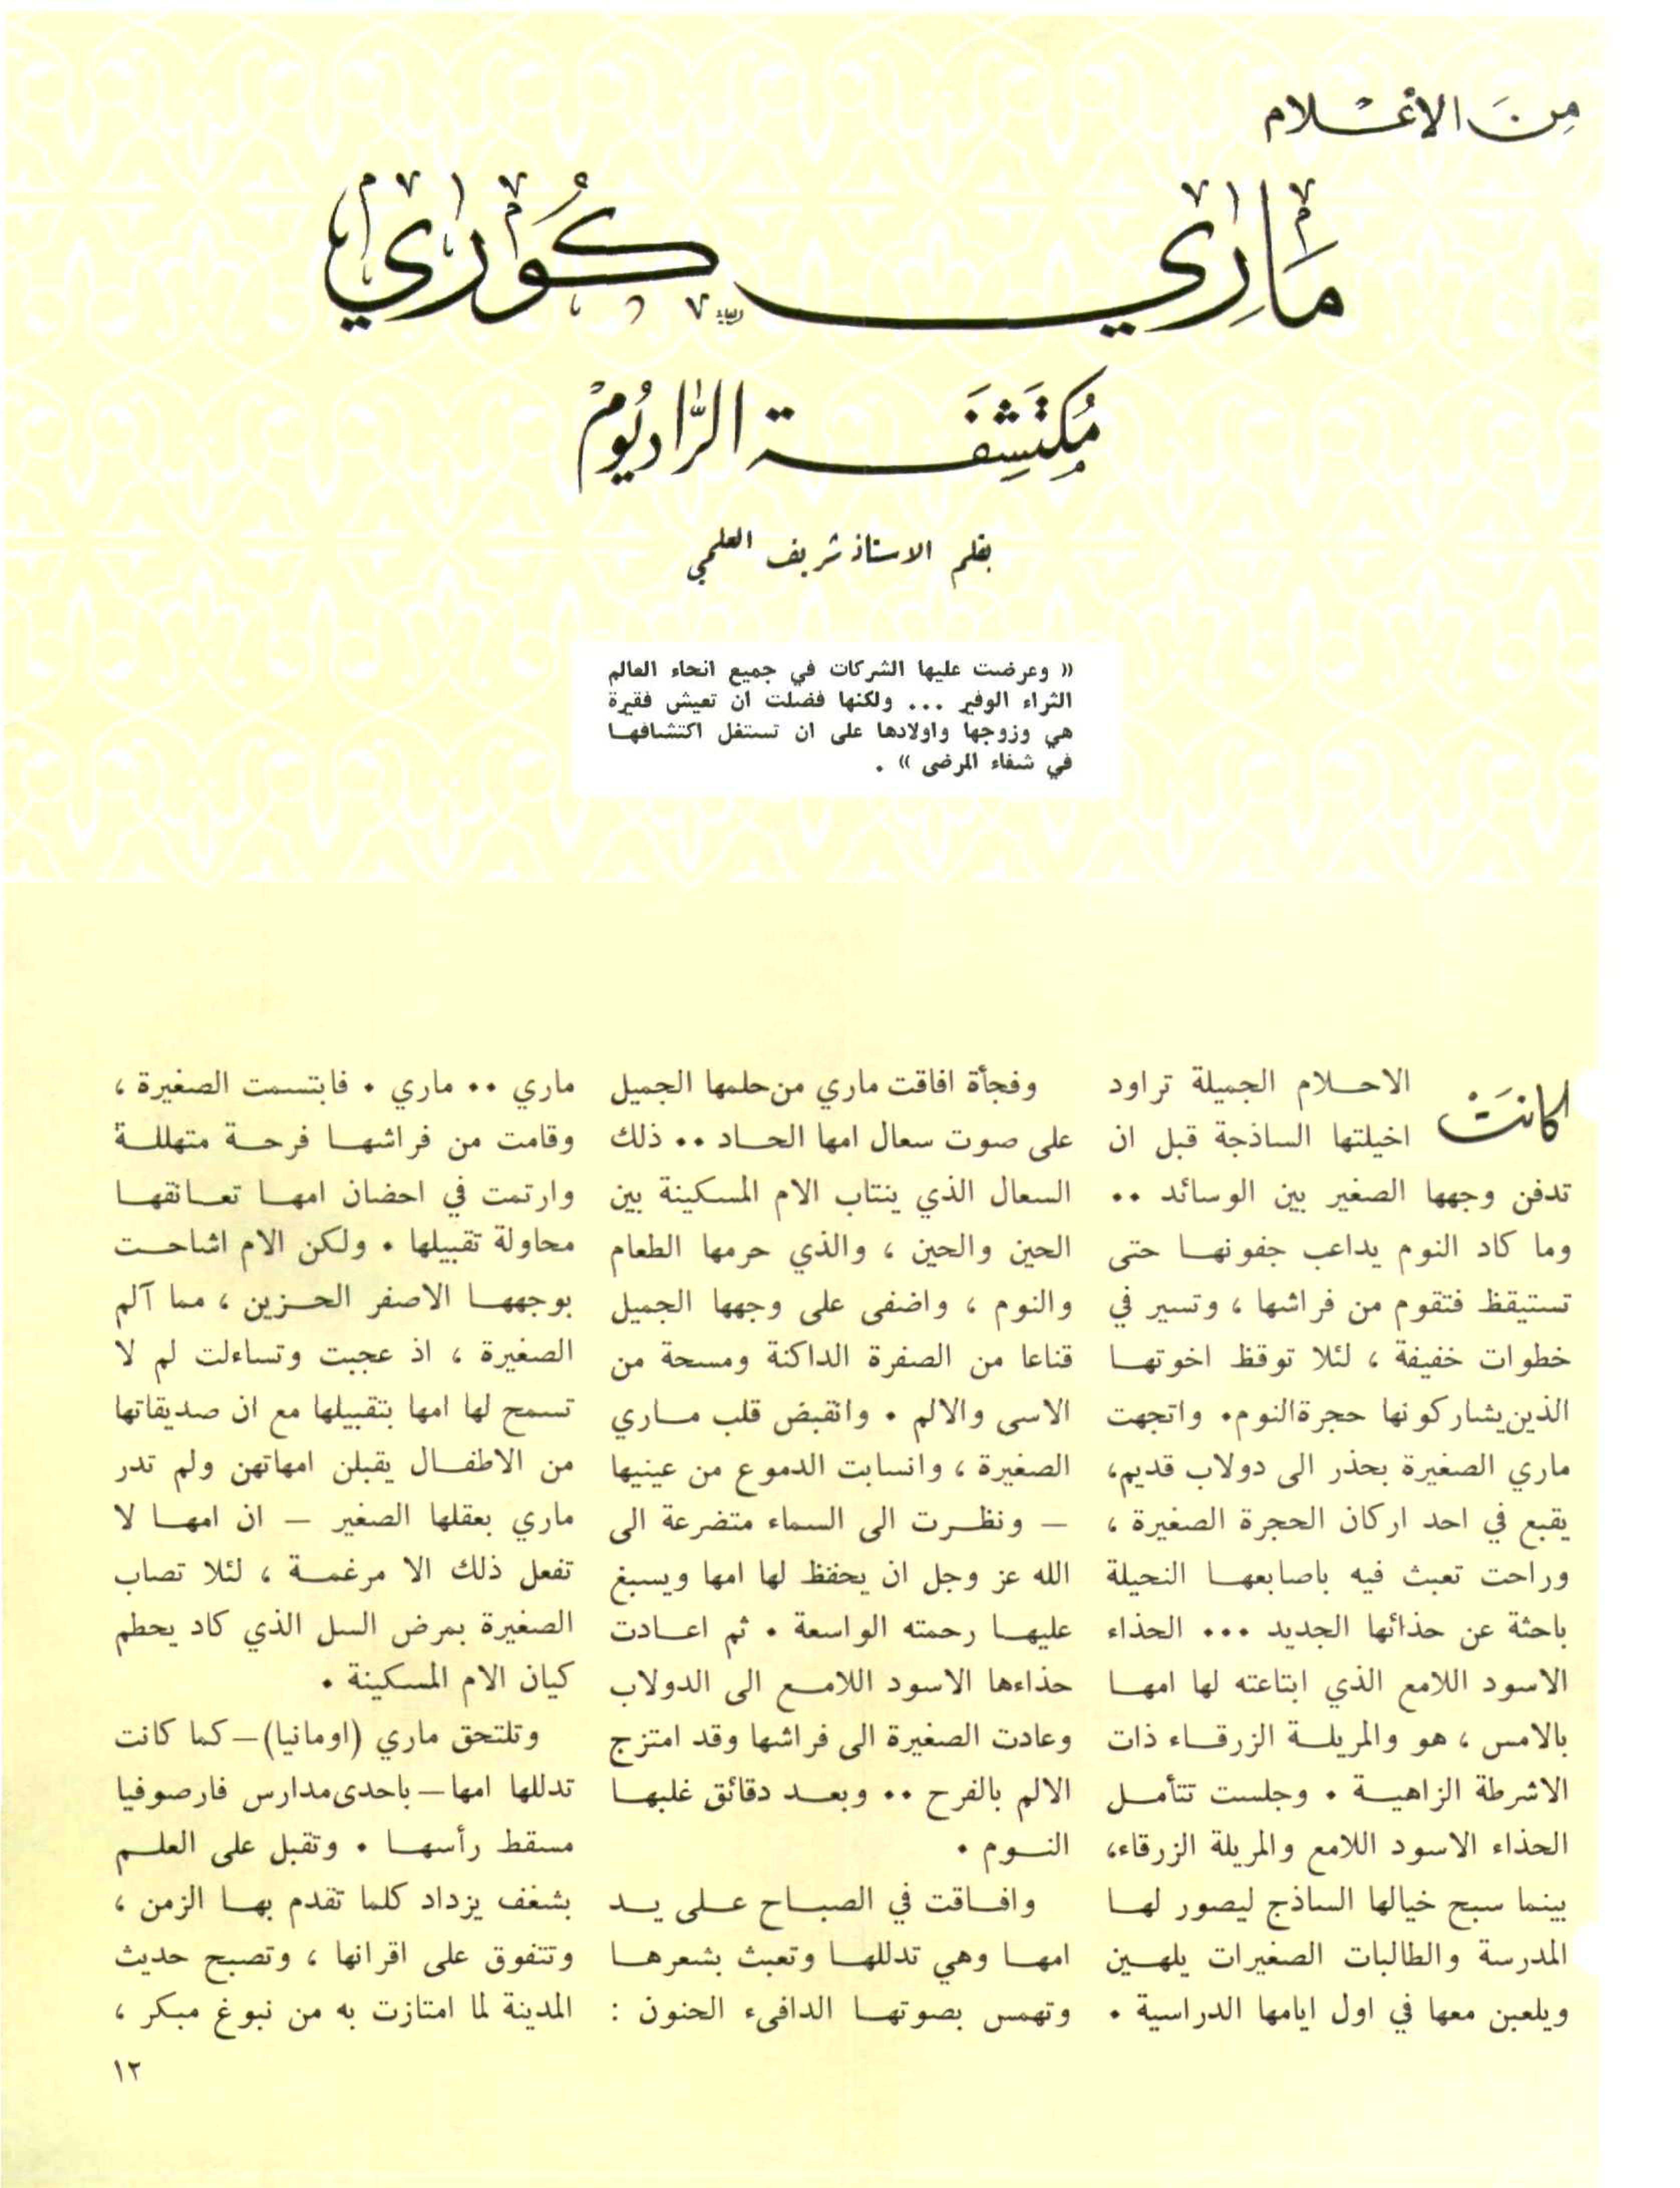 مِنَ الأعْلام
مَاري كُوري
مُكتَشِفَة الرَّاديُومْ
بقلم الاستاذ شريف العلمي
« وعرضت عليها الشركات في جميع انحاء العالم
الثراء الوفير ... ولكنها فضلت ان تعيش فقيرة
هي وزوجها واولادها على ان تستغل اكتشافهـا
في شفاء المرضى » .
كانَتْ الاحـلام الجميلة تراود
اخيلتها الساذجة قبل ان
تدفن وجهها الصغير بين الوسائد ..
وما كاد النوم يداعب جفونهـا حتى
تستيقظ فتقوم من فراشها ، وتسير في
خطوات خفيفة ، لئلا توقظ اخوتهـا
الذين يشاركونها حجرة النوم . واتجهت
ماري الصغيرة بحذر الى دولاب قديم،
يقبع في احد اركان الحجرة الصغيرة ،
وراحت تعبث فيه باصابعهـا النحيلة
باحثة عن حذائها الجديد ... الحذاء
الاسود اللامع الذي ابتاعته لها امهـا
بالامس ، هو والمريلـة الزرقـاء ذات
الاشرطة الزاهيـة . وجلست تتأمـل
الحذاء الاسود اللامع والمريلة الزرقاء،
بينما سبح خيالها الساذج ليصور لهـا
المدرسة والطالبات الصغيرات يلهـين
ويلعبن معها في اول ايامها الدراسية .
وفجأة افاقت ماري من حلمها الجميل
على صوت سعال امها الحـاد .. ذلك
السعال الذي ينتاب الام المسكينة بين
الحين والحين ، والذي حرمها الطعام
والنوم ، واضفى على وجهها الجميل
قناعا من الصفرة الداكنة ومسحة من
الاسى والالم . وانقبض قلب مـاري
الصغيرة ، وانسابت الدموع من عينيها
– ونظـرت الى السماء متضرعة الى
الله عز وجل ان يحفظ لها امها ويسبغ
عليهـا رحمته الواسعة . ثم اعـادت
حذاءها الاسود اللامـع الى الدولاب
وعادت الصغيرة الى فراشها وقد امتزج
الالم بالفرح .. وبعـد دقائق غلبهـا
النـوم .
وافـاقت في الصبـاح علـى يـد
امهـا وهي تدللهـا وتعبث بشعرهـا
وتهمس بصوتهـا الدافىء الحنون :
ماري .. ماري . فابتسمت الصغيرة ،
وقامت من فراشهـا فرحـة متهللـة
وارتمت في احضان امهـا تعـانقهـا
محاولة تقبيلها . ولكن الام اشاحـت
بوجههـا الاصفر الحـزين ، مما آلم
الصغيرة ، اذ عجبت وتساءلت لم لا
تسمح لها امها بتقبيلها مع ان صديقاتها
من الاطفـال يقبلن امهاتهن ولم تدر
ماري بعقلها الصغير – ان امهـا لا
تفعل ذلك الا مرغمـة ، لئلا تصاب
الصغيرة بمرض السل الذي كاد يحطم
كيان الام المسكينة .
وتلتحق ماري (اومانيا) – كما كانت
تدللها امها – باحدى مدارس فارصوفيا
مسقط رأسهـا . وتقبل على العلـم
بشغف يزداد كلما تقدم بهـا الزمن ،
وتتفوق على اقرانها ، وتصبح حديث
المدينة لما امتازت به من نبوغ مبكر ،
١٢